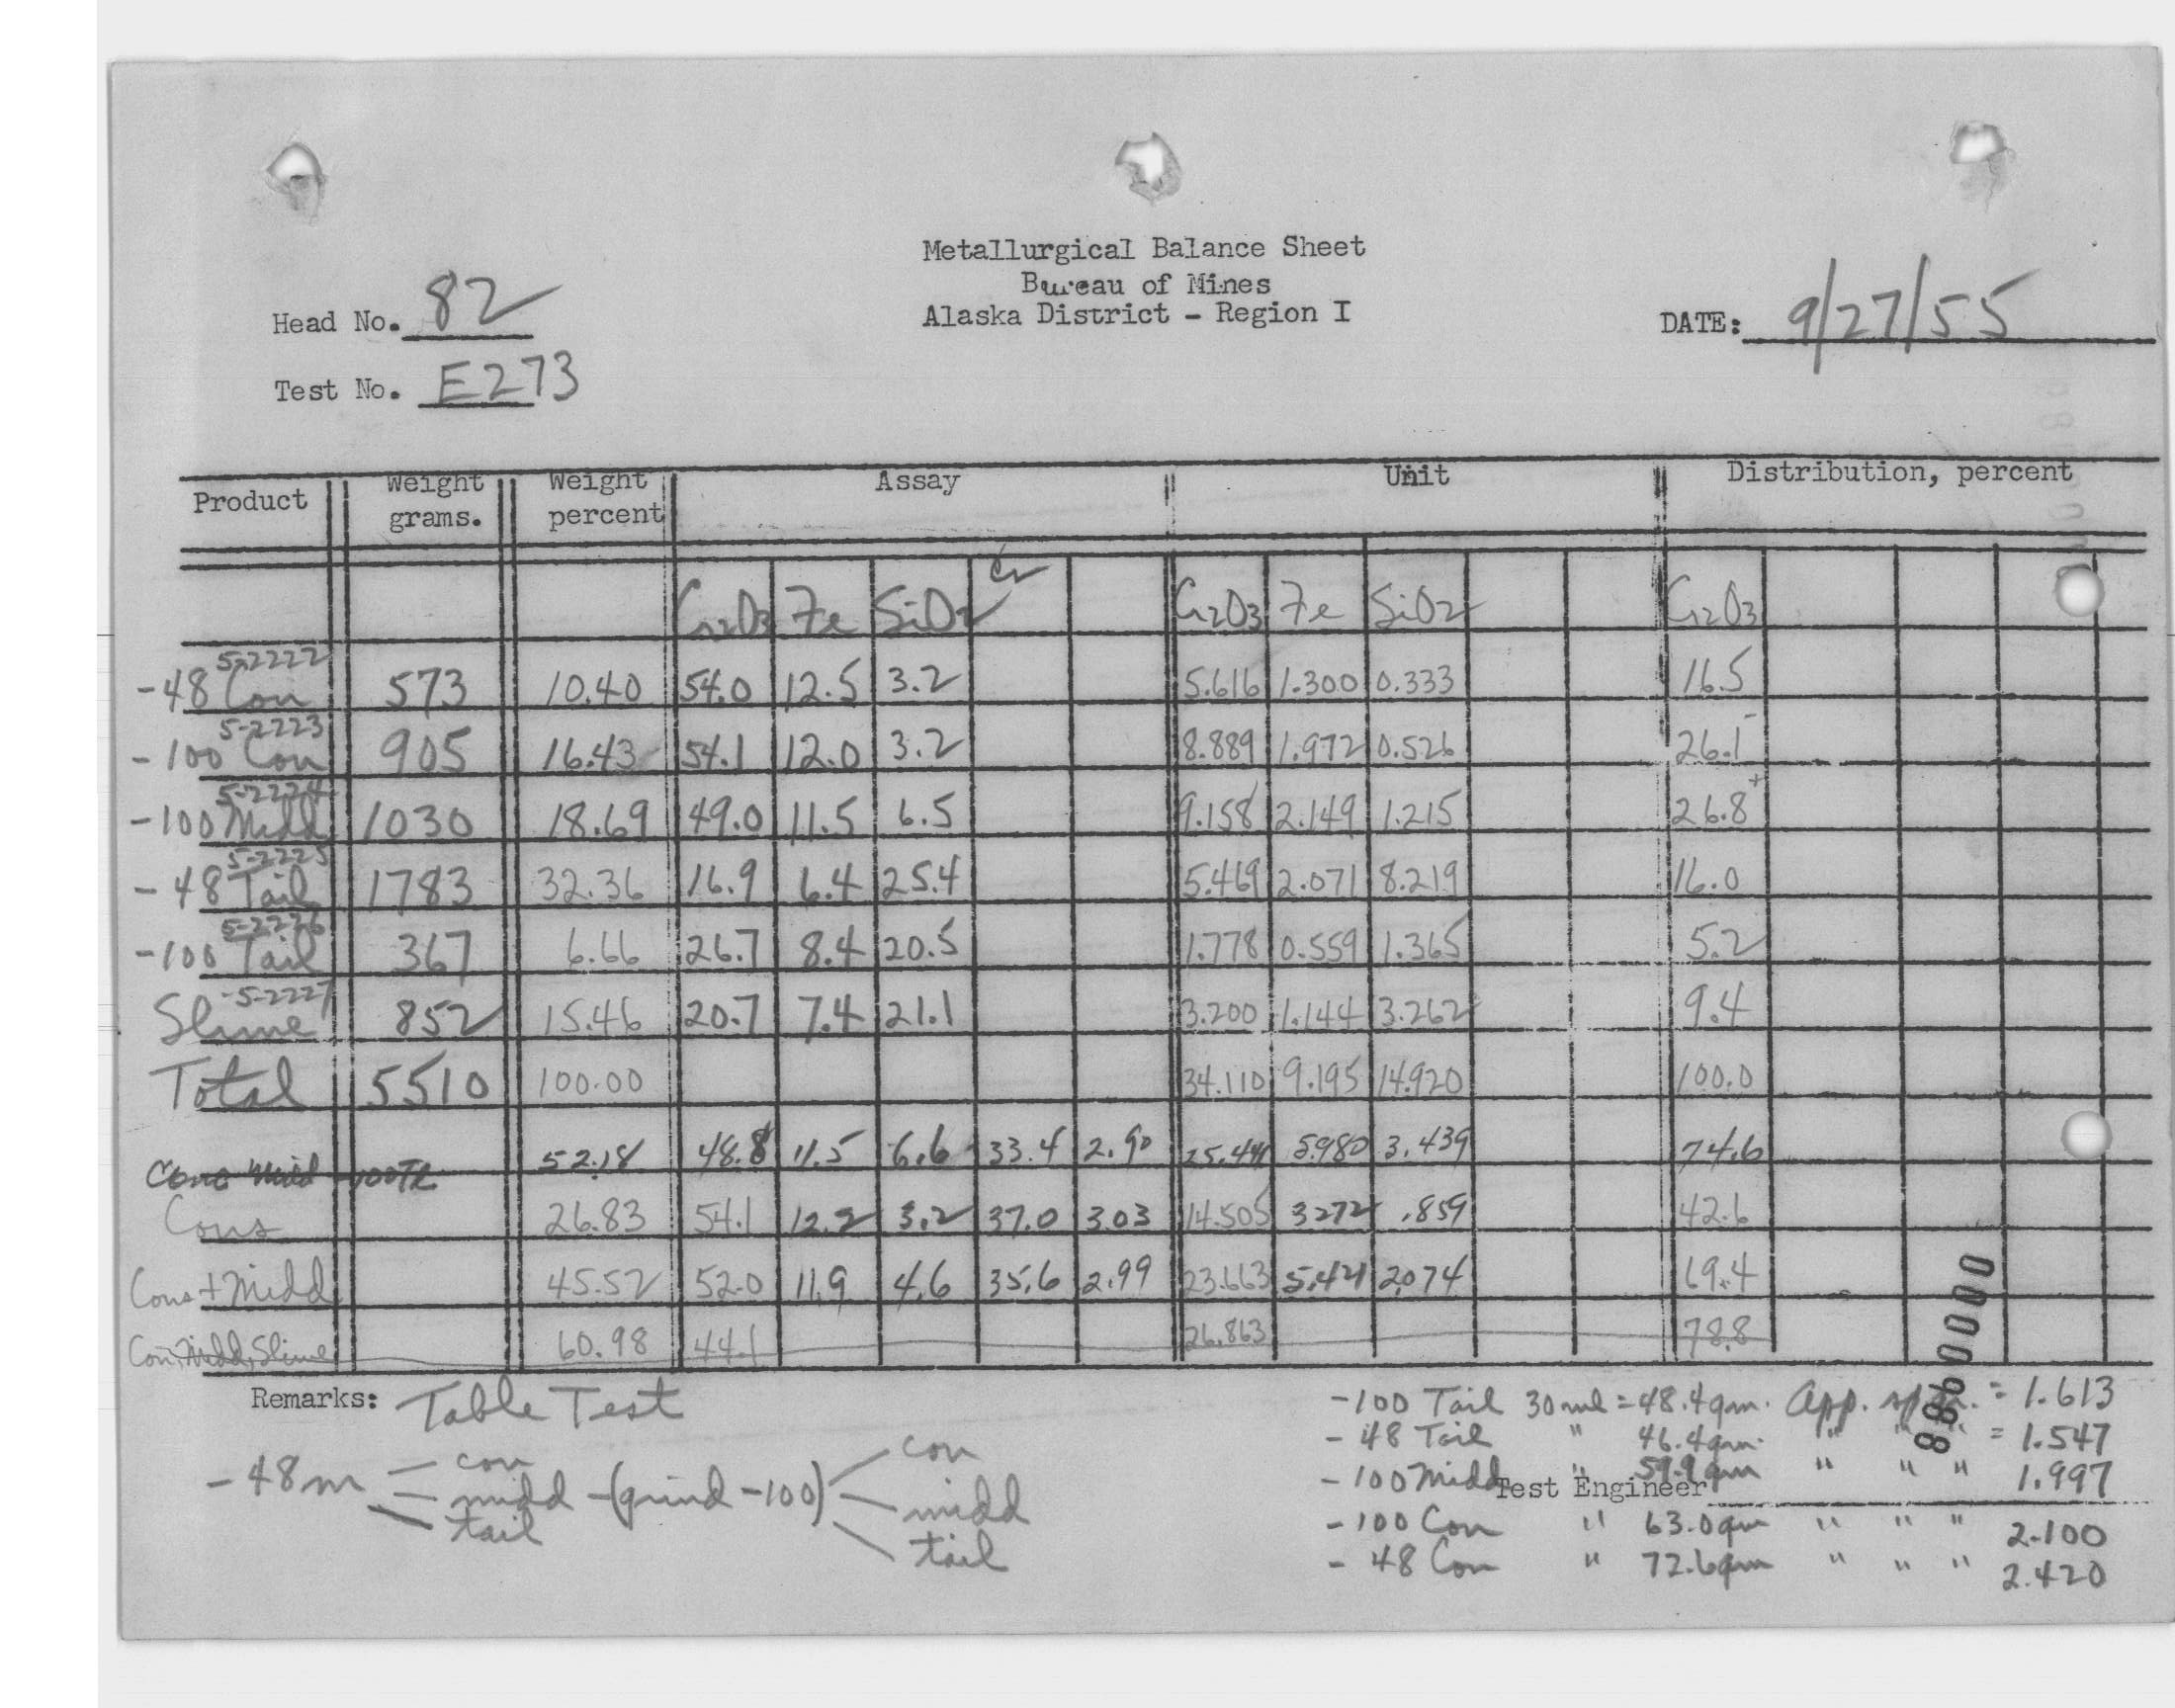 Metallurgical Balance Sheet
Bureau of Mines
Alaska District - Region I
Head No. 82
DATE: 9/27/55
Test No. E273
Product Weight grams. Weight percent Assay Unit Distribution, percent
Cr2O3 Fe SiO2 Cr Cr2O3 Fe SiO2 Cr2O3
5-2222
-48 Con 573 10.40 54.0 12.5 3.2 5.616 1.300 0.333 16.5
5-2223
-100 Con 905 16.43 54.1 12.0 3.2 8.889 1.972 0.526 26.1-
5-2224
-100 Midd 1030 18.69 49.0 11.5 6.5 9.158 2.149 1.215 26.8+
5-2225
-48 Tail 1783 32.36 16.9 6.4 25.4 5.469 2.071 8.219 16.0
5-2226
-100 Tail 367 6.66 26.7 8.4 20.5 1.778 0.559 1.365 5.2
5-2227
Slime 852 15.46 20.7 7.4 21.1 3.200 1.144 3.262 9.4
Total 5510 100.00 34.110 9.195 14.920 100.0
Conc Midd -100Tl 52.18 48.8 11.5 6.6 33.4 2.90 25.441 5.980 3.439 74.6
Cons 26.83 54.1 12.2 3.2 37.0 3.03 14.505 3272 .859 42.6
Cons + Midd 45.52 52.0 11.9 4.6 35.6 2.99 23.663 5.421 2.074 69.4
Con, Midd, Slime 60.98 44.1 26.863 78.8
Remarks: Table Test
-48m con midd tail -(grind -100) con midd tail
-100 Tail 30 ml = 48.4 gm. App. sp. = 1.613
-48 Tail " 46.4 gm. " " " = 1.547
-100 Midd " 59.9 gm " " " 1.997
Test Engineer
-100 Con " 63.0 gm " " " 2.100
-48 Con " 72.6 gm " " " 2.420